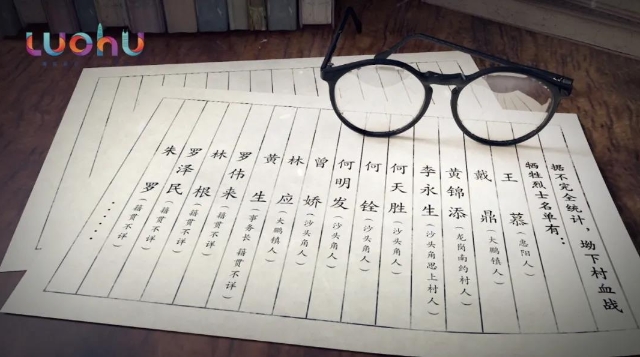 LUOHU
据不完全统计，坳下村血战
牺牲烈士名单有：
王 慕（惠阳人）
戴 鼎（大鹏镇人）
黄锦添（龙岗南约村人）
李永生（沙头角思上村人）
何天胜（沙头角人）
何 铨（沙头角人）
何明发（沙头角人）
曾 娇（沙头角人）
林 应（大鹏镇人）
黄 生（事务长 籍贯不详）
罗伟来（籍贯不详）
林 根（籍贯不详）
罗泽民（籍贯不详）
朱 罗（籍贯不详）
……